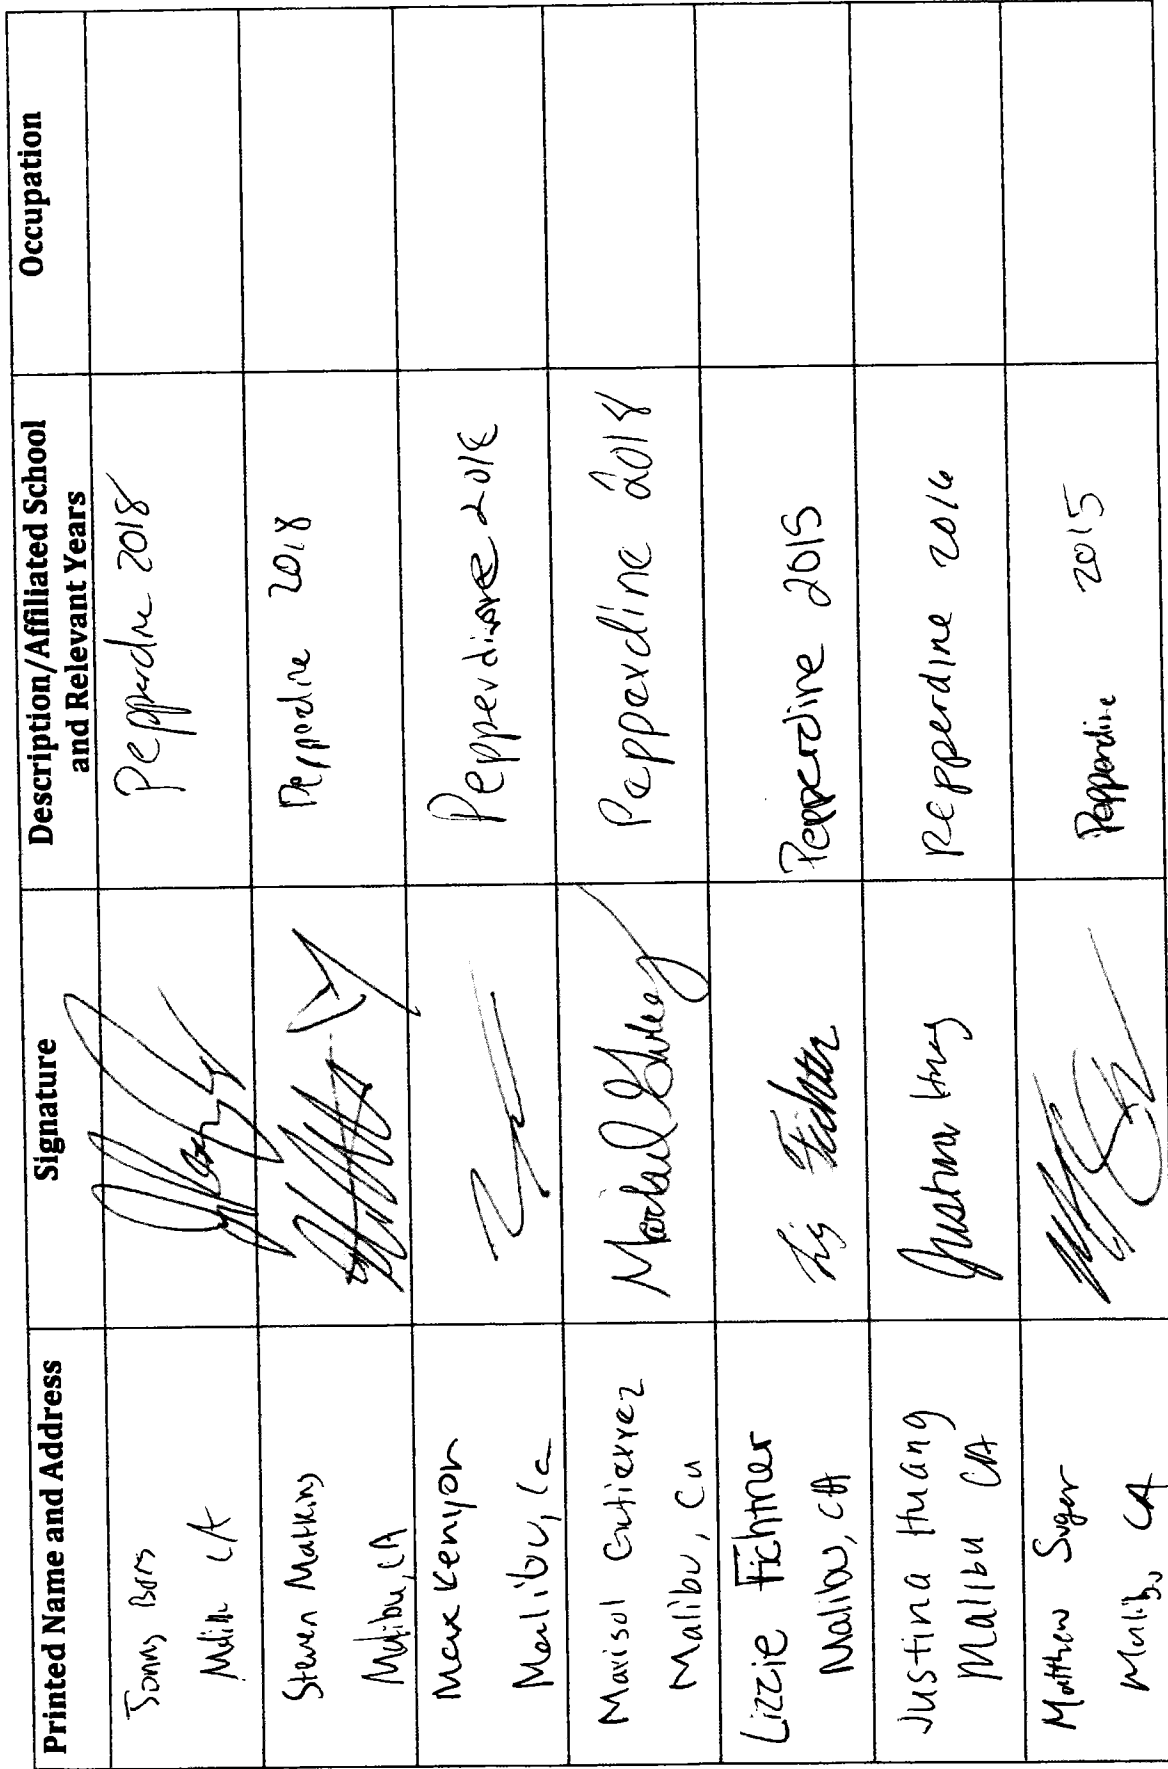 Printed Name and Address Signature Description/Affiliated School and Relevant Years Occupation
Malibu CA
Pepperdine 2018
Steven Matkins
Malibu, CA
Pepperdine 2018
Max Kenyon
Malibu, Ca
Pepperdine 2018
Marisol Gutierrez
Malibu, Ca
Marisol Gutierrez
Pepperdine 2018
Lizzie Fichtner
Malibu, CA
Liz Fichtner
Pepperdine 2015
Justina Huang
Malibu CA
Justina Huang
Pepperdine 2016
Matthew Suger
Malibu CA
Pepperdine 2015